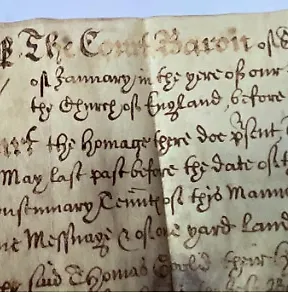 The Court Baron of
of January in the yere of our
the Church of England, before
the homage there doe p̄sent
May last past before the date of t
ustumary Ten̄nt of this Mann
ne Messuage & of one yard Land
said Thomas their H